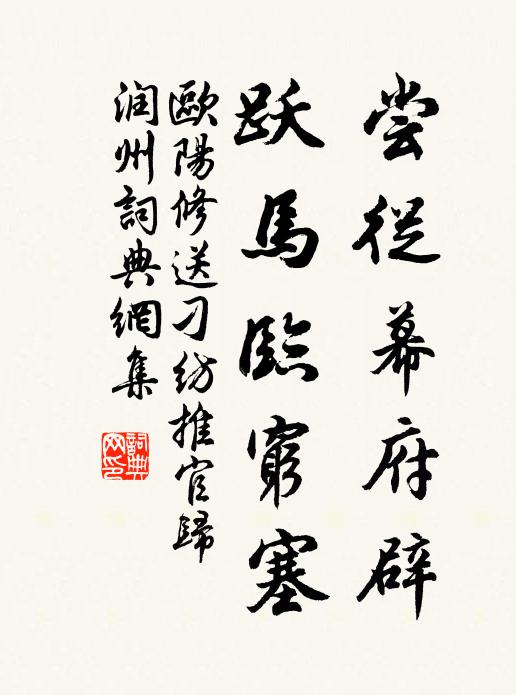 尝從幕府辟
跃馬臨窮塞
歐陽修送刁纺推官歸
润州詞典網集
詞典
网印